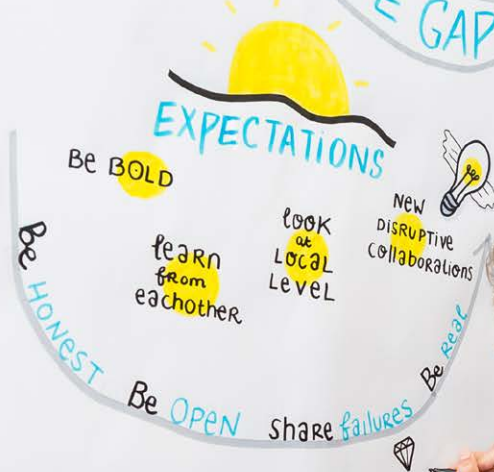 E GAP
EXPECTATIONS
Be BOLD
learn
from
eachother
look
at
LOCAL
LEVEL
NEW
DISRUPTIVE
Collaborations
Be HONEST
Be OPEN
share failures
Be Real